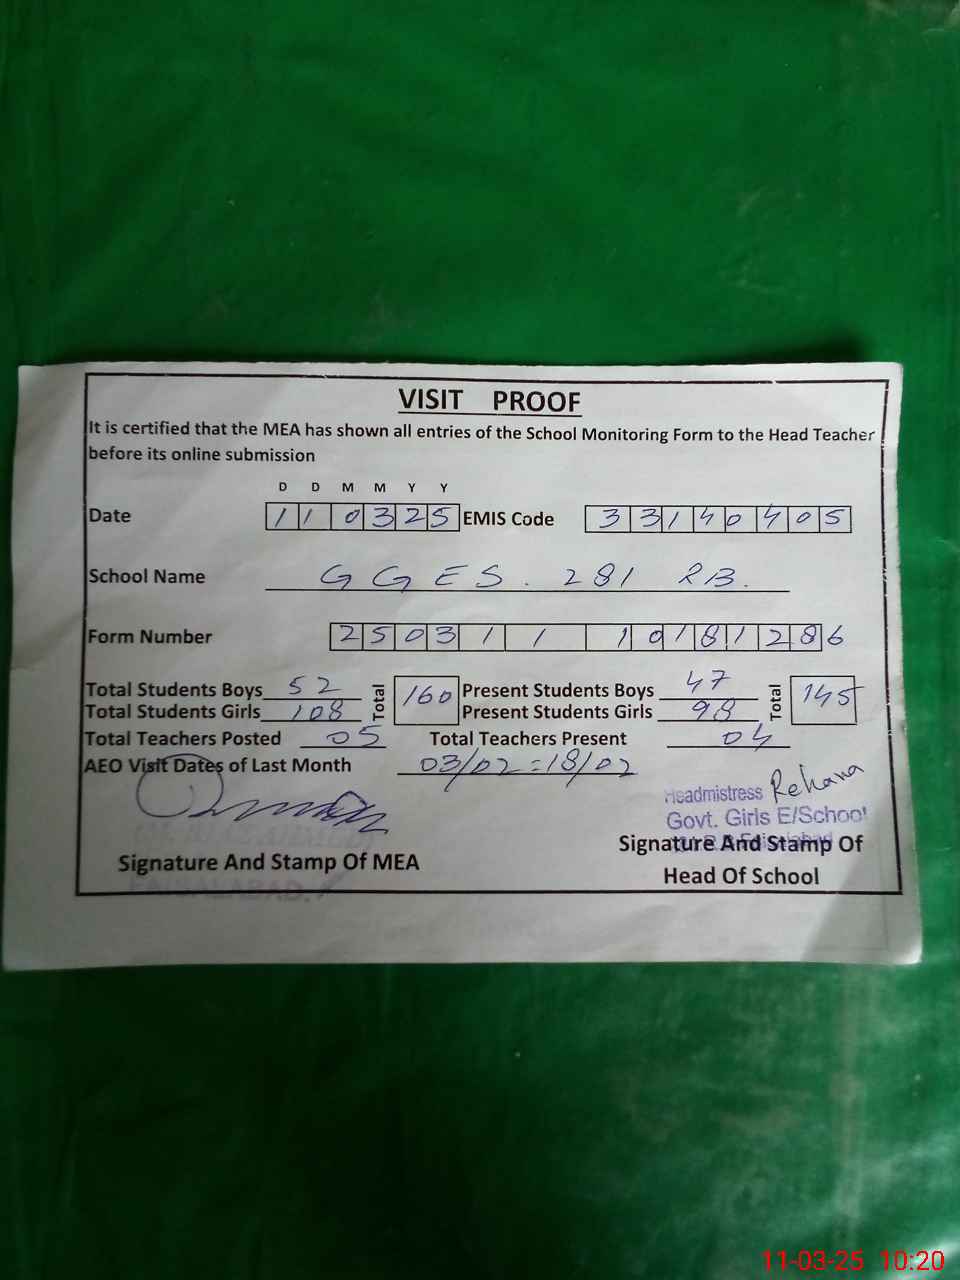 VISIT PROOF
It is certified that the MEA has shown all entries of the School Monitoring Form to the Head Teacher
before its online submission
D D M M Y Y
Date 110325 EMIS Code 33140405
School Name GGES. 281 RB.
Form Number 25031110181286
Total Students Boys 52 Total 160 Present Students Boys 47 Total 145
Total Students Girls 108 Present Students Girls 98
Total Teachers Posted 05 Total Teachers Present 04
AEO Visit Dates of Last Month 03/02 = 18/02
Headmistress Rehana
Govt. Girls E/School
Signature And Stamp Of MEA
FAISALABAD.
Signature And Stamp Of
Head Of School
11-03-25 10:20